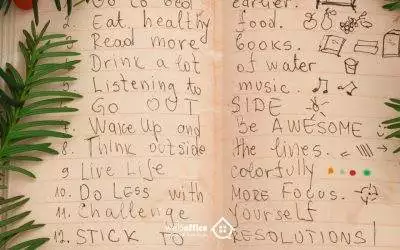 Go to bed earlier.
Eat healthy food.
3. Read more books.
Drink a lot of water
5. Listening to music.
GO OUT SIDE
7. Wake Up and Be AWESOME
8. Think outside the lines.
9 Live Life colorfully
10. Do LESS with MORE FOCUS.
11. Challenge Yourself
12. STICK TO RESOLUTIONS!
weboffice